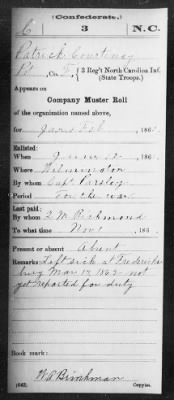 (Confederate.)
C 3 N.C.
Patrick Courtney
Pt, Co. F, 3 Reg't North Carolina Inf.
(State Troops.)
Appears on
Company Muster Roll
of the organization named above,
for Jan & Feb, 186
Enlisted:
When June 12, 186
Where Wilmington
By whom Capt. Parsley
Period For the war
Last paid:
By whom Q M Richmond
To what time Nov 1, 186
Present or absent Absent
Remarks: Left sick at Fredericks-
burg Mar 17 1862 not
yet reported for duty
Book mark:
(642) W A Brinkman
Copyist.